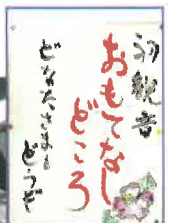 初観音
おもてなし
どころ
どなたさまも
どうぞ